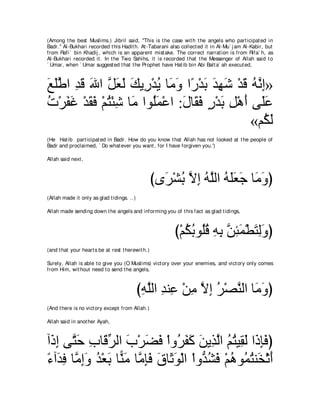 (Among the best Muslims.) Jibril said, "This is the case with the angels who participated in
Badr." Al-Bukhari recorded this Hadith. At-Tabarani also collected it in Al-Mu`jam Al-Kabir, but
from Rafi` bin Khadij, which is an apparent mistake. The correct narration is from Rifa`h, as
Al-Bukhari recorded it. In the Two Sahihs, it is recorded that the Messenger of Allah said to
`Umar, when `Umar suggested that the Prophet have Hatib bin Abi Balta`ah executed,
«إِنَّهُ قَدْ شَهِدَ بَدْرًا، وَمَا يُدْرِيكَ لَعَلَّ اللهَ قَدِ اطَّلَعَ
عَلَى أَهْلِ بَدْرٍ فَقَالَ: اعْمَلُوا مَا شِئْتُمْ فَقَدْ غَفَرْتُ
لَكُم»
(He Hatib participated in Badr. How do you know that Allah has not looked at the people of
Badr and proclaimed, `Do whatever you want, for I have forgiven you.')
Allah said next,
(وَمَا جَعَلَهُ اللَّهُ إِلاَّ بُشْرَى)
(Allah made it only as glad tidings. ..)
Allah made sending down the angels and informing you of this fact as glad tidings,
(وَلِتَطْمَئِنَّ بِهِ قُلُوبُكُمْ)
(and that your hearts be at rest therewith.)
Surely, Allah is able to give you (O Muslims) victory over your enemies, and victory only comes
from Him, without need to send the angels,
(وَمَا النَّصْرُ إِلاَّ مِنْ عِندِ اللَّهِ)
(And there is no victory except from Allah.)
Allah said in another Ayah,
(فَإِذَا لَقِيتُمُ الَّذِينَ كَفَرُواْ فَضَرْبَ الرِّقَابِ حَتَّى إِذَآ
أَثْخَنتُمُوهُمْ فَشُدُّواْ الْوَثَاقَ فَإِمَّا مَنًّا بَعْدُ وَإِمَّا فِدَآءً